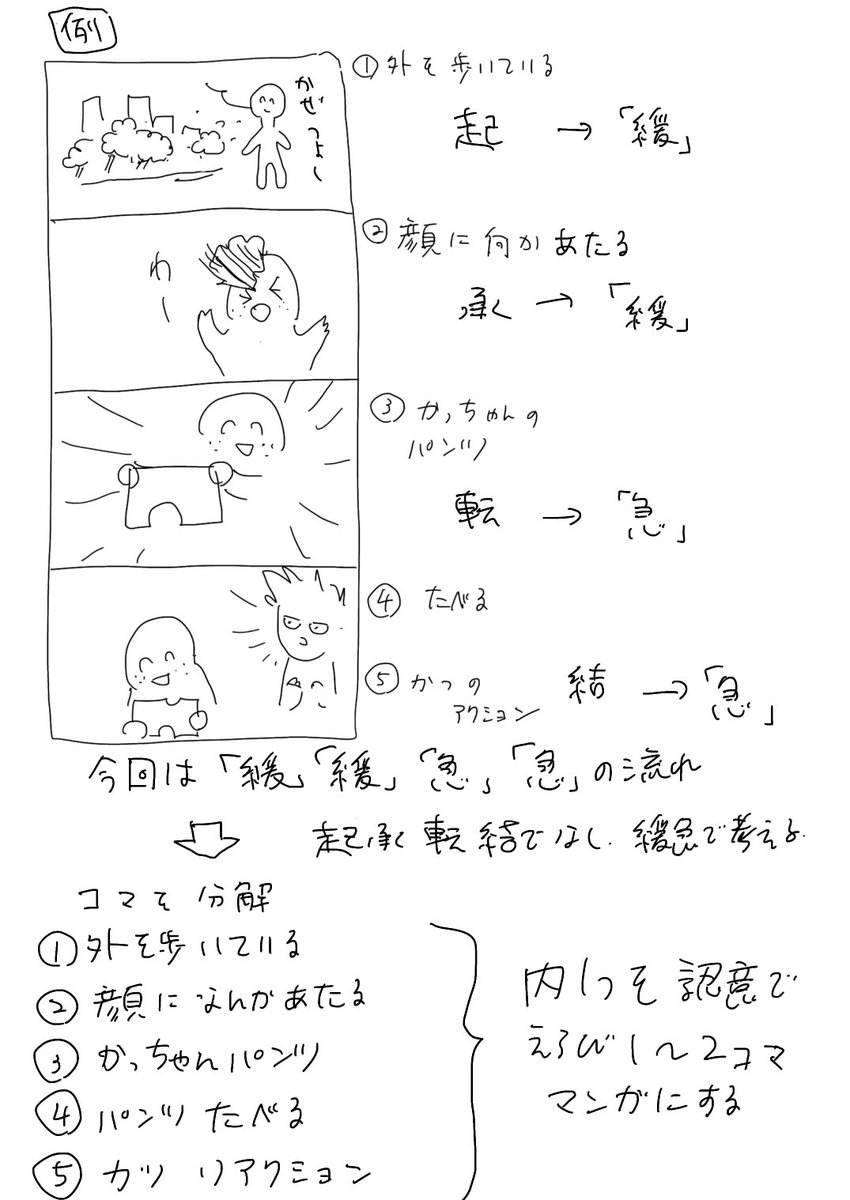 例
かぜつよー
①外を歩いている
起 → 「緩」
わー
②顔に何かあたる
承 → 「緩」
③かっちゃんの
パンツ
転 → 「急」
④ たべる
⑤かつの
アクション
結 → 「急」
今回は「緩」「緩」「急」「急」の流れ
起承転結でなし.緩急で考える.
コマを分解
①外を歩いている
②顔になんかあたる
③かっちゃんパンツ
④パンツたべる
⑤カツリアクション
内1つを認意で
えらび1〜2コマ
マンガにする